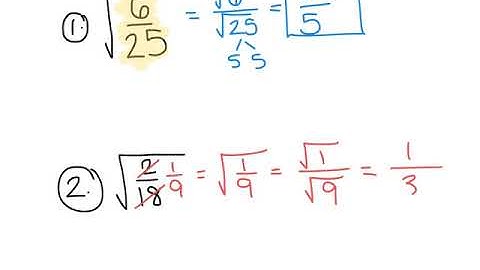 1. √(6/25) = √6/√25 = /5
5 5
2. √(2/18) 1/9 = √(1/9) = √1/√9 = 1/3